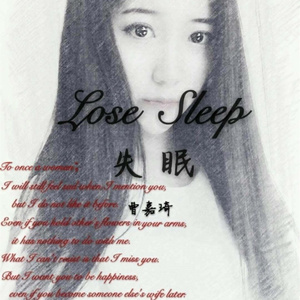 Lose Sleep
失眠
曹嘉琦
To once a women's
I will still feel sad when I mention you,
but I do not like it before.
Even if you hold other's flowers in your arms,
it has nothing to do with me.
What I can't resist is that I miss you.
But I want you to be happiness,
even if you become someone else's wife later.